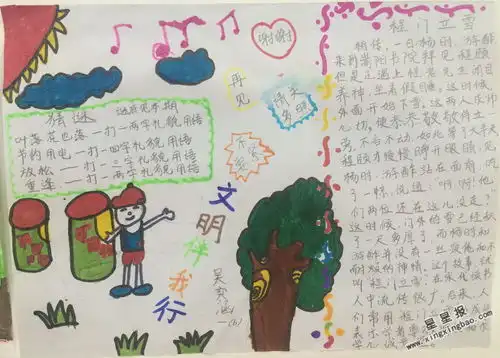 谢谢
再见
请多多关照
不客气
猜谜
谜底见本期
叶落花也落——打一两字礼貌用语
节约用电——打一四字礼貌用语
放松——打一两字礼貌用语
重逢——打一两字礼貌用语
文明伴我行
程门立雪
相传,一日杨时、游酢
来到嵩阳书院拜见程颐
但是正遇上程老先生闭目
养神,坐着假睡。这时候
外面开始下雪。这两人求师
心切,便恭恭敬敬侍立一
旁,不言不动,如此等了大半天
程颐才慢慢睁开眼睛,见
杨时、游酢站在面前,吃
了一惊,说道:“啊,啊!他
们两位还在这儿没走?”
这时候,门外的雪已经积
了一尺多厚了,而杨时和
游酢并没有一丝疲倦和不
耐烦的神情。这个故事,就
叫“程门立雪”,在宋代读书
人中流传很广。后来人
们常用“程门立雪”
表示
星星报
www.xingxingbao.com